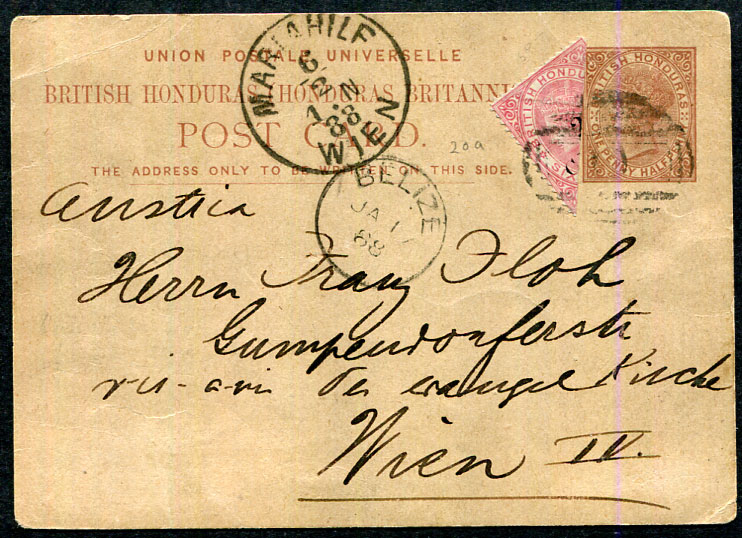 UNION POSTALE UNIVERSELLE
BRITISH HONDURAS (HONDURAS BRITANNI
POST CARD.
THE ADDRESS ONLY TO BE WRITTEN ON THIS SIDE.
MARIAHILF
WIEN
88
BELIZE
JA 1
88
20a
BRITISH HONDU
SIX
BRITISH HONDURAS
ONE PENNY HALFP
Austria
Herrn Franz Floh
Gumpendorferstr
vis-a-vis der evangel Kirche
Wien IV.